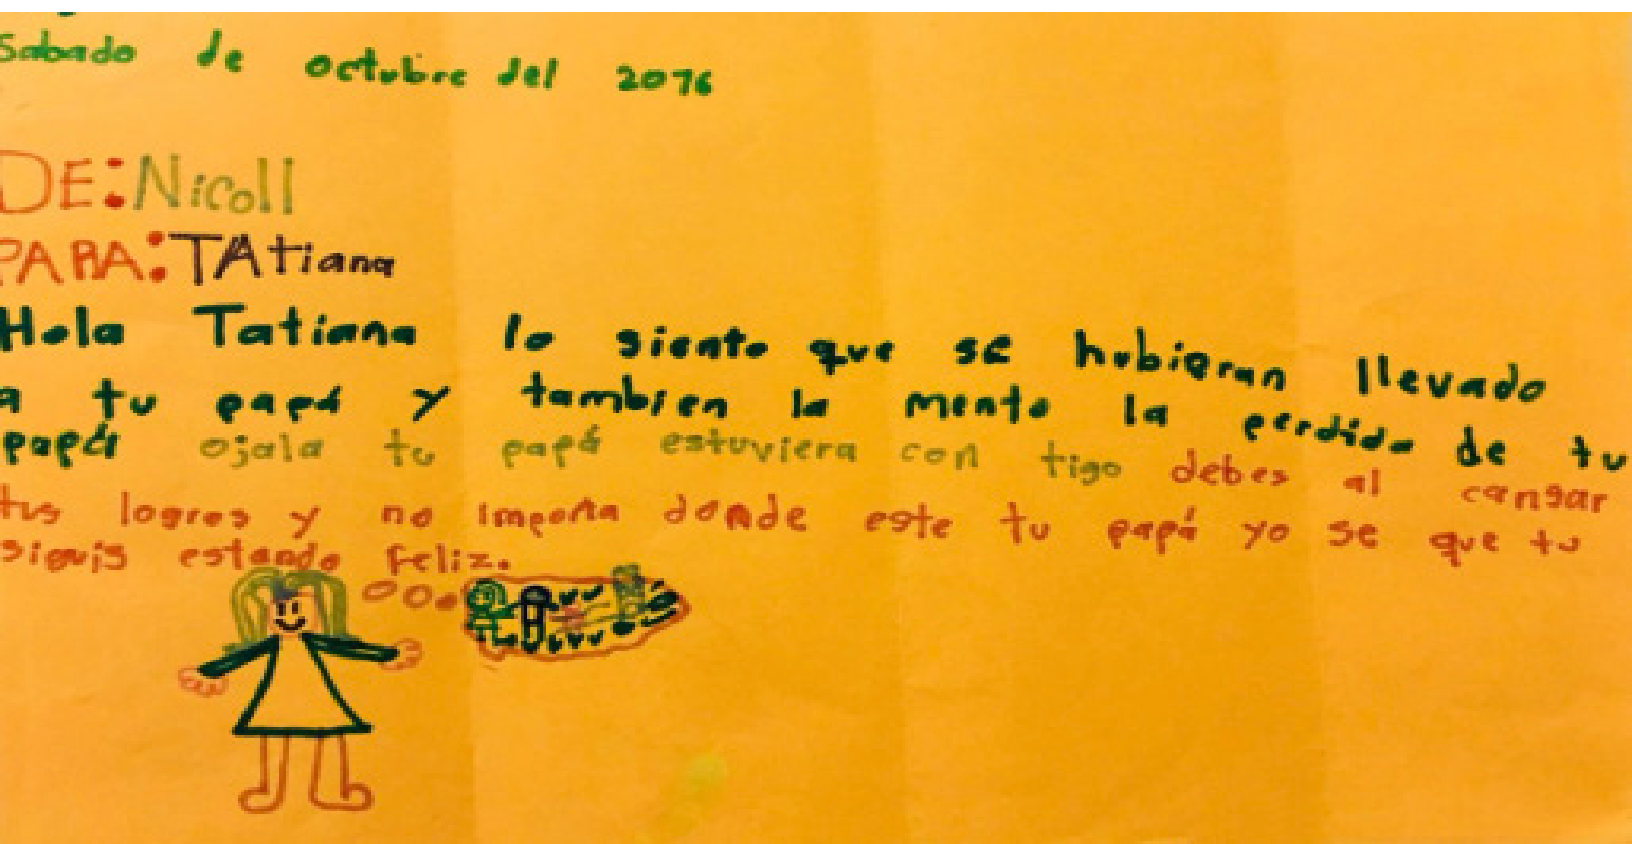 Sabado de octubre del 2076
DE: Nicoll
PARA: TAtiana
Hola Tatiana lo siento que se hubieran llevado
a tu papá y tambien la mento la perdida de tu
papá ojala tu papá estuviera con tigo debes al cansar
tus logros y no importa donde este tu papá yo se que tu
siguis estando feliz.